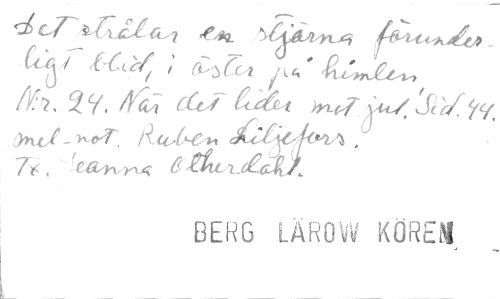 Det strålar en stjärna förunder-
ligt blid, i öster på himlen
Nr. 24. När det lider mot jul. Sid. 44.
mel-not. Ruben Liljefors.
Tx. Jeanna Otherdahl.
BERG LÄROW KÖREN